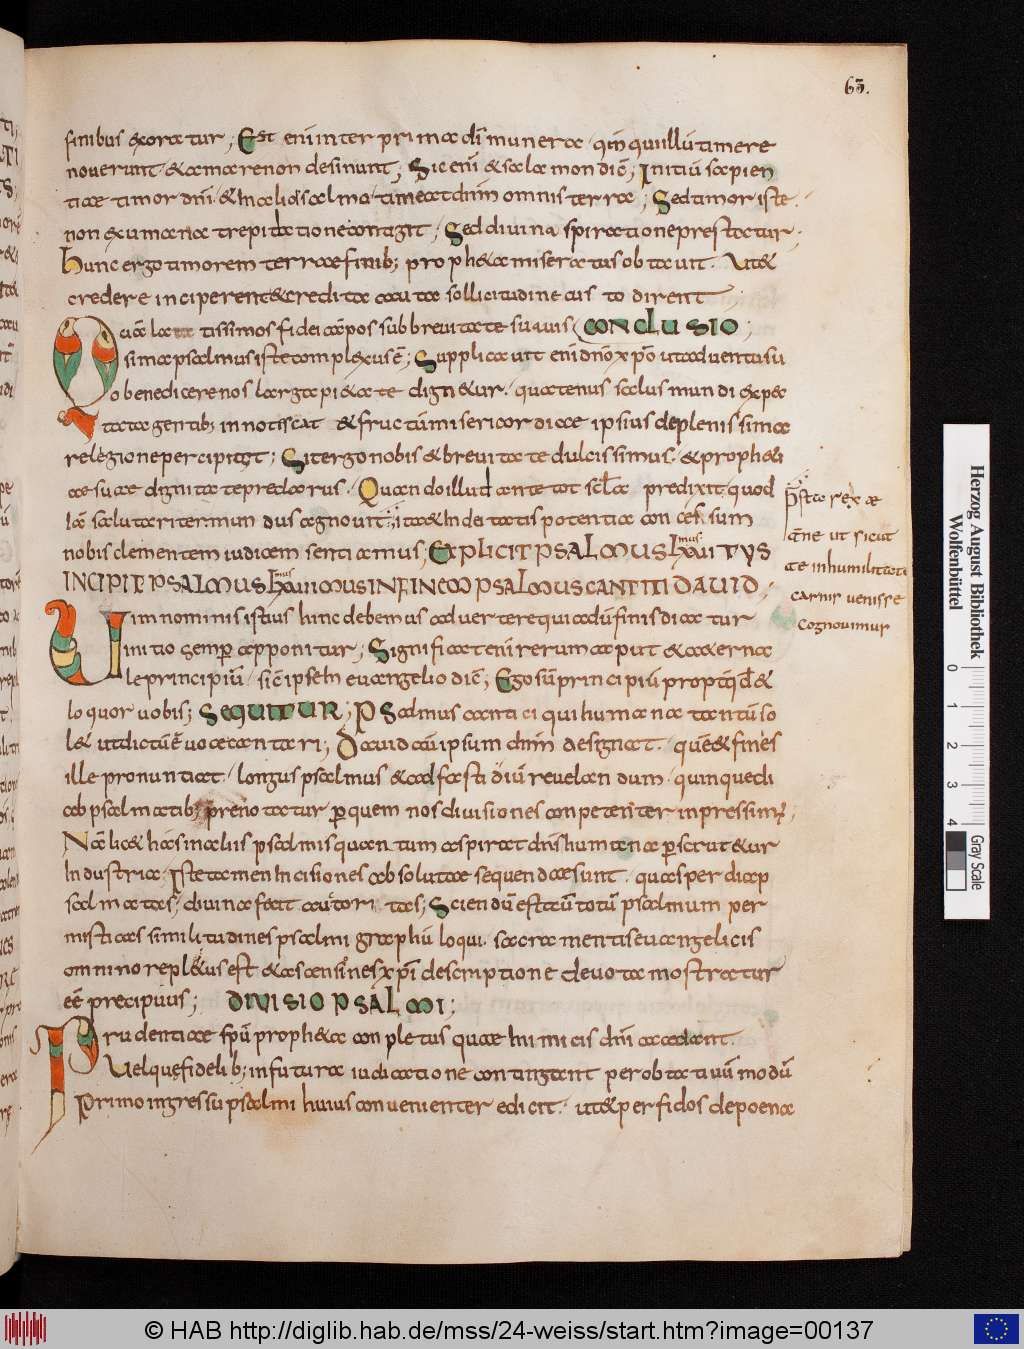 63.
finibus exoratur; Est enim inter prima dī munera. quī quillū timere
noverunt. & amare non desinunt; Sic enī & salamon dicē; Initiū sapien
tiae timor dnī. & In alio psalmo. timeat dnm omnis terra; Sed timor iste.
non ex humana trepidatione contagit; Sed divina spiratione prestatur;
hunc ergo timorem terrae finib; propheta miseratus obtavit. Ut &
credere inciperent & credita cauta sollicitudine custodirent
Quā latatissimos fidei cāpos sub brevitate suavis CONCLUSIO;
simā psalmus iste complexus ē; Supplicavit enī dnō xpō ut adventu su
o benedicere nos larga pietate dignetur. quatenus saeclus mundi expec
tata gentib; innotiscat & fructū misericordiae ipsius deplenissima
relegione percipiat; Sit ergo nobis & brevitate dulcissimus. & proph&i
ae suae dignitate preclarus. Quando illud ante tot scla predixit quod
lā salutariter mundus agnovit. ita & In deitatis potentia concessum
nobis clementem iudicem sentiamus; EXPLICIT PSALMUS LXVI TVS
INCIPIT PSALMUS LXVII MUS IN FINEM PSALMUS CANTITI DAVID;
Vim nominis istius hinc debemus advertere qui adū finis dicatur
Initio semp apponitur; Significat enī rerum caput & aeterna
le principiū. sic ipse In evangelio dic; Ego sū principiū propt qd &
loquor vobis; SEQUITUR; PSalmus cantici qui humana tantū so
l& ut dictū ē voce cantari; David cū ipsum dnm designat. quē & fines
ille pronuntiat. longus psalmus & ad facta diū revelandum. quinque di
ab psalmatib; prenotatur p quem nos divisiones competenter inpressim;
Nā lic& hās In aliis psalmis quantum aspirat dns humana pscrutetur
Industria. Iste tamen Incisiones absolutae sequendae sunt. quas per diap
salmatas; divina fecit auctoritas; Sciendū est tū totū psalmum per
misticas similitudines psalmi graphū loqui. sacramentis euangelicis
omnino repl&us est & ascensiones xpi descriptione devota mostratur
eē precipuus; DIVISIO PSALMI;
Prudentiae spū proph&a conpletus quae Inimicis dnī accedant.
Vel que fidelib; in futura iudicatione contingant per obtativū modū
Primo ingressu psalmi huius convenienter edicit. ut & perfidos de poena
p̄sta rex æ
t̄ne ut sicut
te in humilitate
carnis venisse
cognovimur
Herzog August Bibliothek
Wolfenbüttel
0 1 2 3 4
Gray Scale
© HAB http://diglib.hab.de/mss/24-weiss/start.htm?image=00137